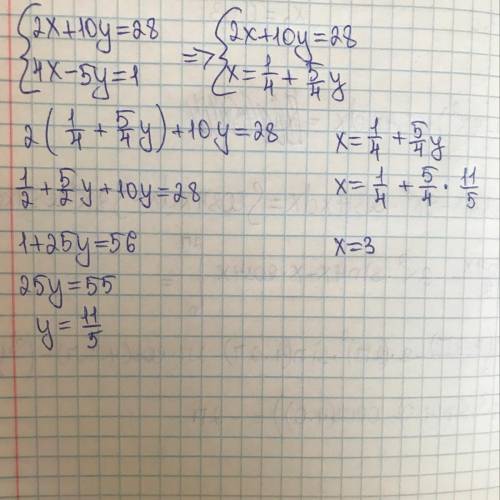 {2x+10y=28 => {2x+10y=28
{4x-5y=1 {x=1/4+5/4y
2(1/4+5/4y)+10y=28
1/2+5/2y+10y=28
1+25y=56
25y=55
y=11/5
x=1/4+5/4y
x=1/4+5/4·11/5
x=3